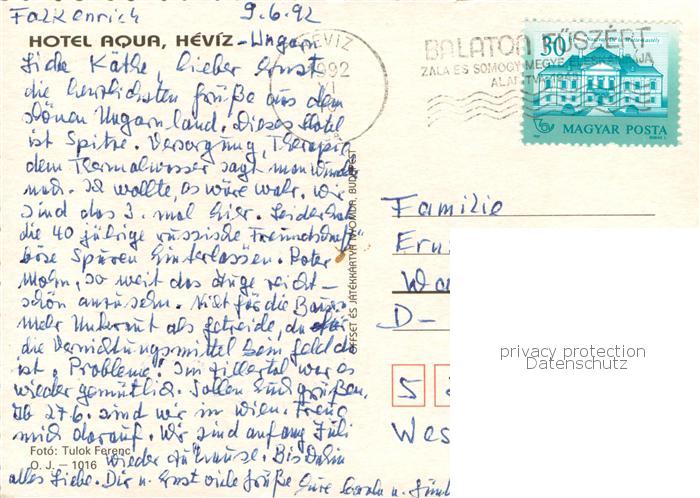 Falkenrich 9.6.92
HOTEL AQUA, HÉVÍZ - Ungarn
HÉVÍZ
1992
BALATON FŰSZÉRT
ZALA ÉS SOMOGY MEGYE
30
MAGYAR POSTA
Liebe Käthe, lieber Ernst
die herzlichsten Grüße aus dem
schönen Ungarnland. Dieses Hotel
ist Spitze. Versorgung, Therapie,
dem Thermalwasser sagt man Wunder
nach. Ich wollte, es wäre wahr. Wir
sind das 3. mal hier. Leider hat
die 40 jährige russische Freundschaft
böse Spuren hinterlassen. Roter
Mohn, so weit das Auge reicht -
schön anzusehn. Nicht für die Bauern
Mehr Unkraut als Getreide, da für
die Vernichtungsmittel kein Geld da
ist. „Probleme". Im Zillertal war es
wieder gemütlich. Sollen Euch grüßen.
Ab 27.6. sind wir in Wien. Freue
mich darauf. Wir sind anfang Juli
wieder zu Hause. Bis dahin
alles Liebe. Dir u. Ernst viele Grüße Eure u.
Fotó: Tulok Ferenc
O. J. — 1016
OFFSET ÉS JÁTÉKKÁRTYA NYOMDA, BUDAPEST
Familie
D-
5
Wes
privacy protection
Datenschutz